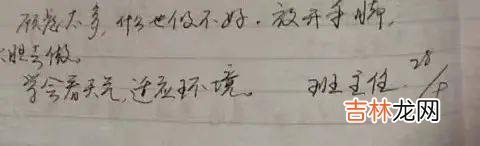 顾虑太多，什么也做不好。放开手脚，
大胆去做。
学会看天气，适应环境。 班主任 28/
吉林龙网